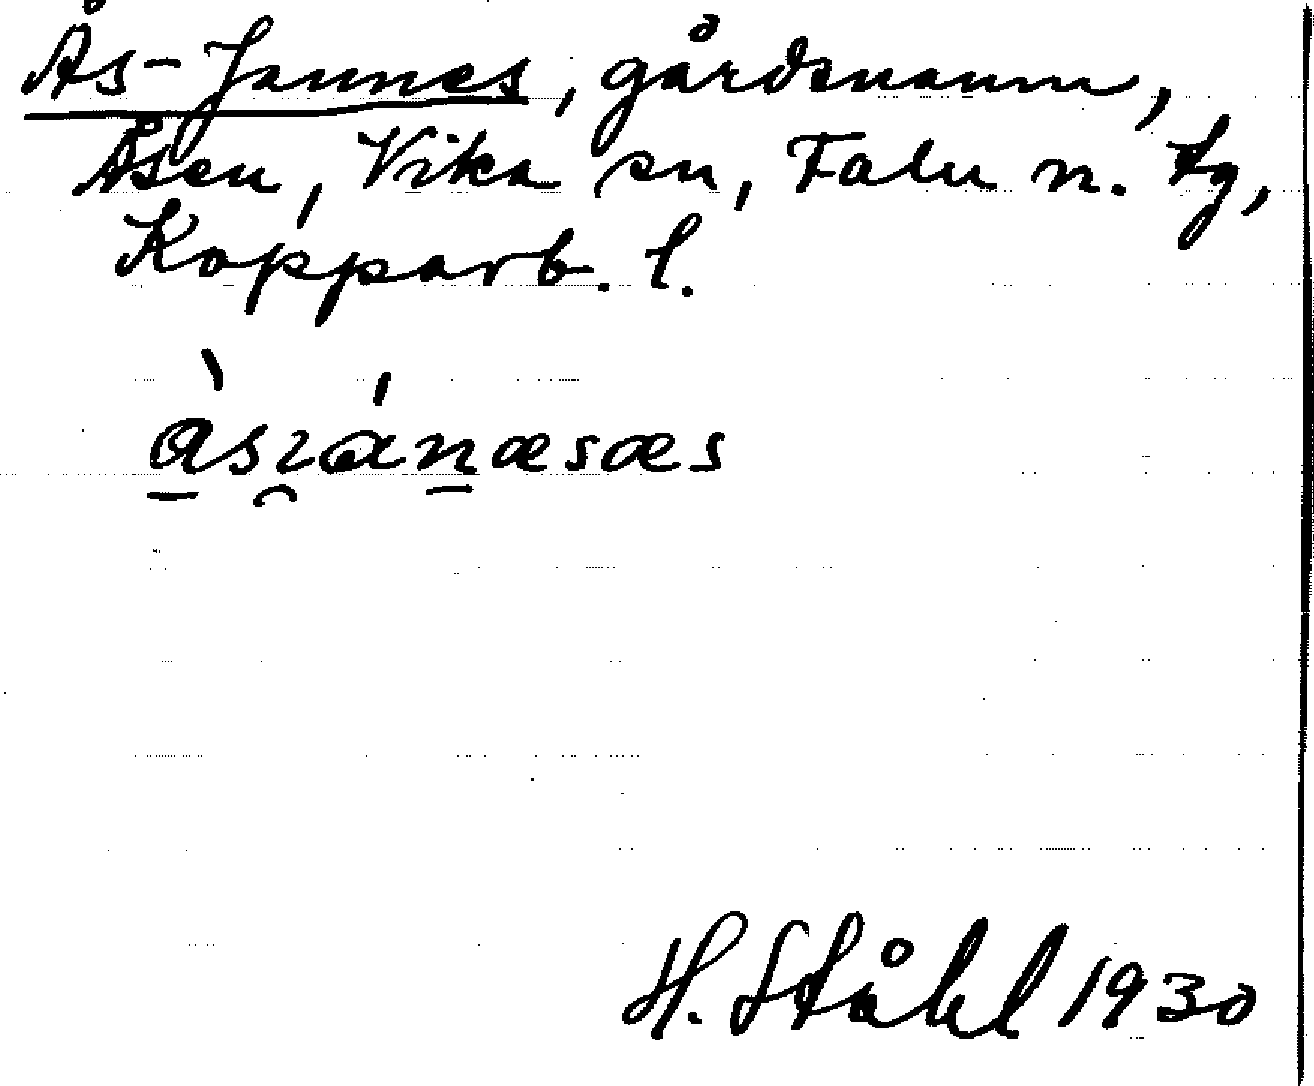 Ås-Jannes, gårdsnamn,
Åsen, Vika sn, Falu n. tg,
Kopparb. l.
H. Ståhl 1930